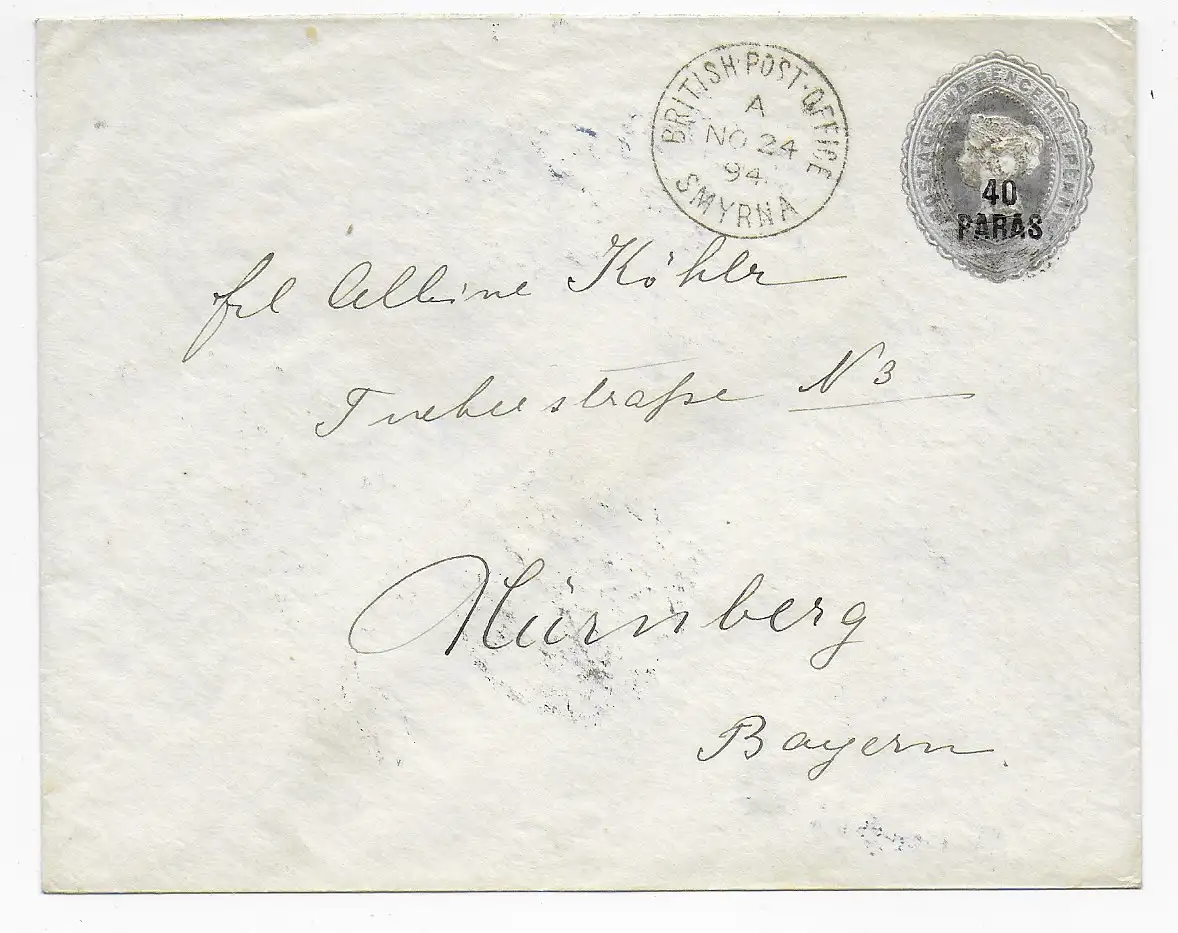 BRITISH·POST·OFFICE
A
NO 24
94
SMYRNA
POSTAGE TWO PENCE HALFPENNY
40
PARAS
frl Albine Köhler
Tucherstraße N 3
Nürnberg
Bayern